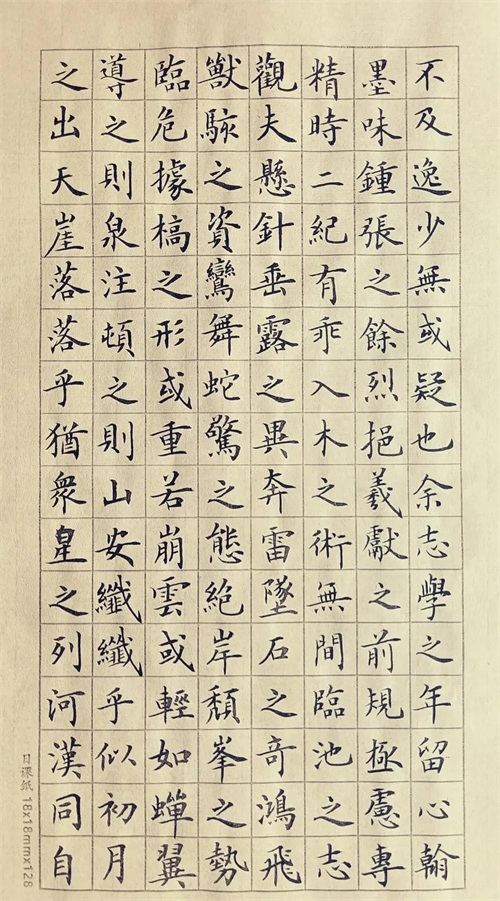 不及逸少無或疑也余志學之年留心翰
墨味鍾張之餘烈挹羲獻之前規極慮專
精時二紀有乖入木之術無間臨池之志
觀夫懸針垂露之異奔雷墜石之奇鴻飛
獸駭之資鸞舞蛇驚之態絕岸頹峯之勢
臨危據槁之形或重若崩雲或輕如蟬翼
導之則泉注頓之則山安纖纖乎似初月
之出天崖落落乎猶衆星之列河漢同自
日课纸 18x18mmx128